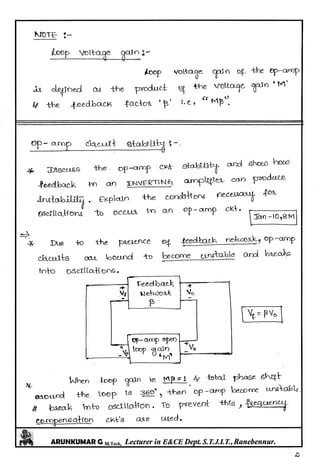 NOTE :-
Loop voltage gain :-
Loop voltage gain of the op-amp
is defined as the product of the voltage gain 'M'
& the feedback factor 'β' i.e, "Mβ".
op-amp circuit stability :-
* Discuss the op-amp ckt stability and show how
feedback in an INVERTING amplifier can produce
instability. Explain the conditions necessary for
oscillations to occur in an op-amp ckt.
Jan-10,8M
=>
* Due to the presence of feedback network, op-amp
circuits are bound to become unstable and breaks
into oscillations.
Feedback
Network
β
+ Vf -
+ Vo -
Vf = βVo
op-amp open
loop gain
"M"
* When loop gain is Mβ=1 & total phase shift
around the loop is 360°, then op-amp become unstable
& break into oscillation. To prevent this, frequency
compensation ckt's are used.
ARUNKUMAR G M.Tech, Lecturer in E&CE Dept. S.T.J.I.T., Ranebennur.